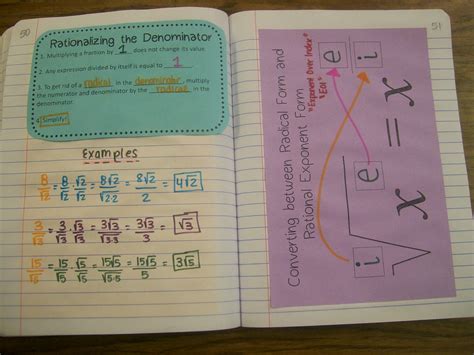 50
Rationalizing the Denominator
1. Multiplying a fraction by 1 does not change its value.
2. Any expression divided by itself is equal to 1.
3. To get rid of a radical in the denominator, multiply
the numerator and denominator by the radical in the
denominator.
4. Simplify!
Examples
8/√2 = 8/√2 · √2/√2 = 8√2/√2·2 = 8√2/2 = 4√2
3/√3 = 3/√3 · √3/√3 = 3√3/√3·3 = 3√3/3 = √3
15/√5 = 15/√5 · √5/√5 = 15√5/√5·5 = 15√5/5 = 3√5
51
Converting between Radical Form and
Rational Exponent Form
"Exponent Over Index"
"EOI"
ⁱ√xᵉ = x^(e/i)